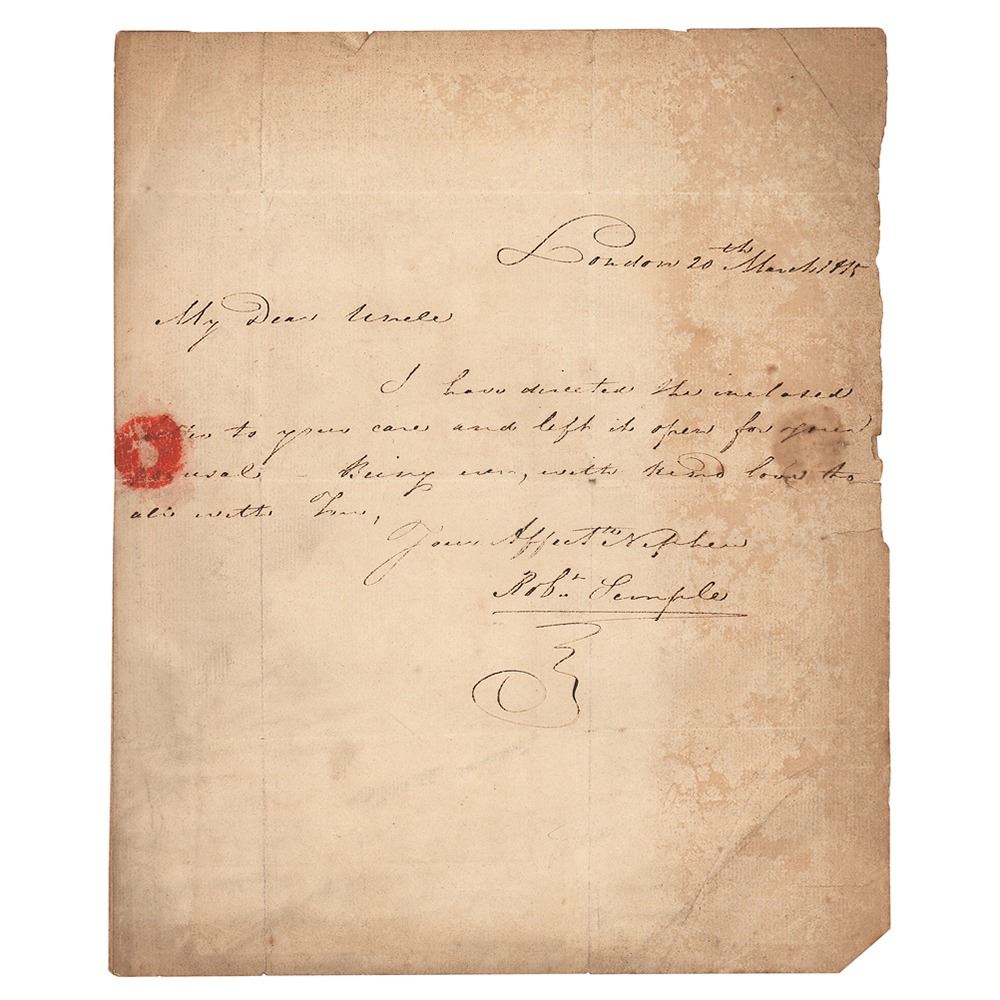 London 20th March 1815
My Dear Uncle
I have directed the inclosed
to your care and left it open for your
perusal – Being ever, with kind love to
all with You,
Your Affectte Nephew
Robt. Semple